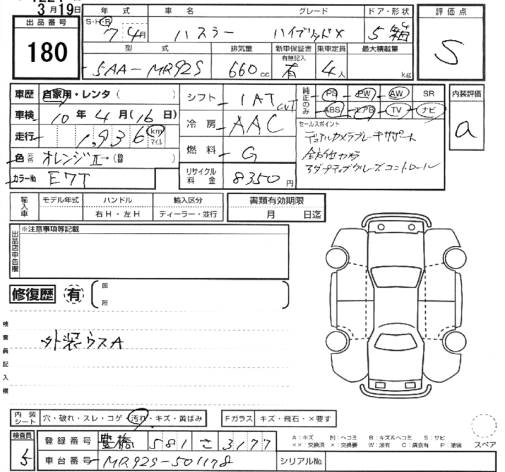 3月19日
出品番号
180
年式
車名
グレード
ドア・形状
S・H・R 7年4月 ハスラー ハイブリッドX 5 箱
型式
排気量
新車保証書
乗車定員
最大積載量
有無記入
5AA-MR92S 660cc 有 4人 kg
評価点
S
車歴 自家用・レンタ(
車検 10年4月(16日)
走行 1,936 km マイル
色 元色 オレンジⅡ (替
カラーNo E7T
シフト IAT CVT
冷房 AAC
燃料 G
リサイクル料金 8350円
純正のみ
PS PW AW SR
ABS エアB TV ナビ
セールスポイント
デュアルカメラブレーキサポート
全方位カメラ
アダプティブクルーズコントロール
内装評価
a
輸入車
モデル年式
ハンドル
右H・左H
輸入区分
ディーラー・並行
書類有効期限
月 日迄
出品店申告欄
※注意事項等記載
修復歴 有
箇所
検査員記入欄
外装ウスA
内装シート
穴・破れ・スレ・コゲ・汚れ・キズ・黄ばみ
Fガラス
キズ・飛石・×要す
検査員
5
登録番号 豊橋 581 さ 3177
車台番号 MR92S-501178
シリアルNo.
A:キズ H:ヘコミ B:キズ&ヘコミ S:サビ
××:交換済 ×:要交換 W:波有 C:腐食有 P:塗装
スペア